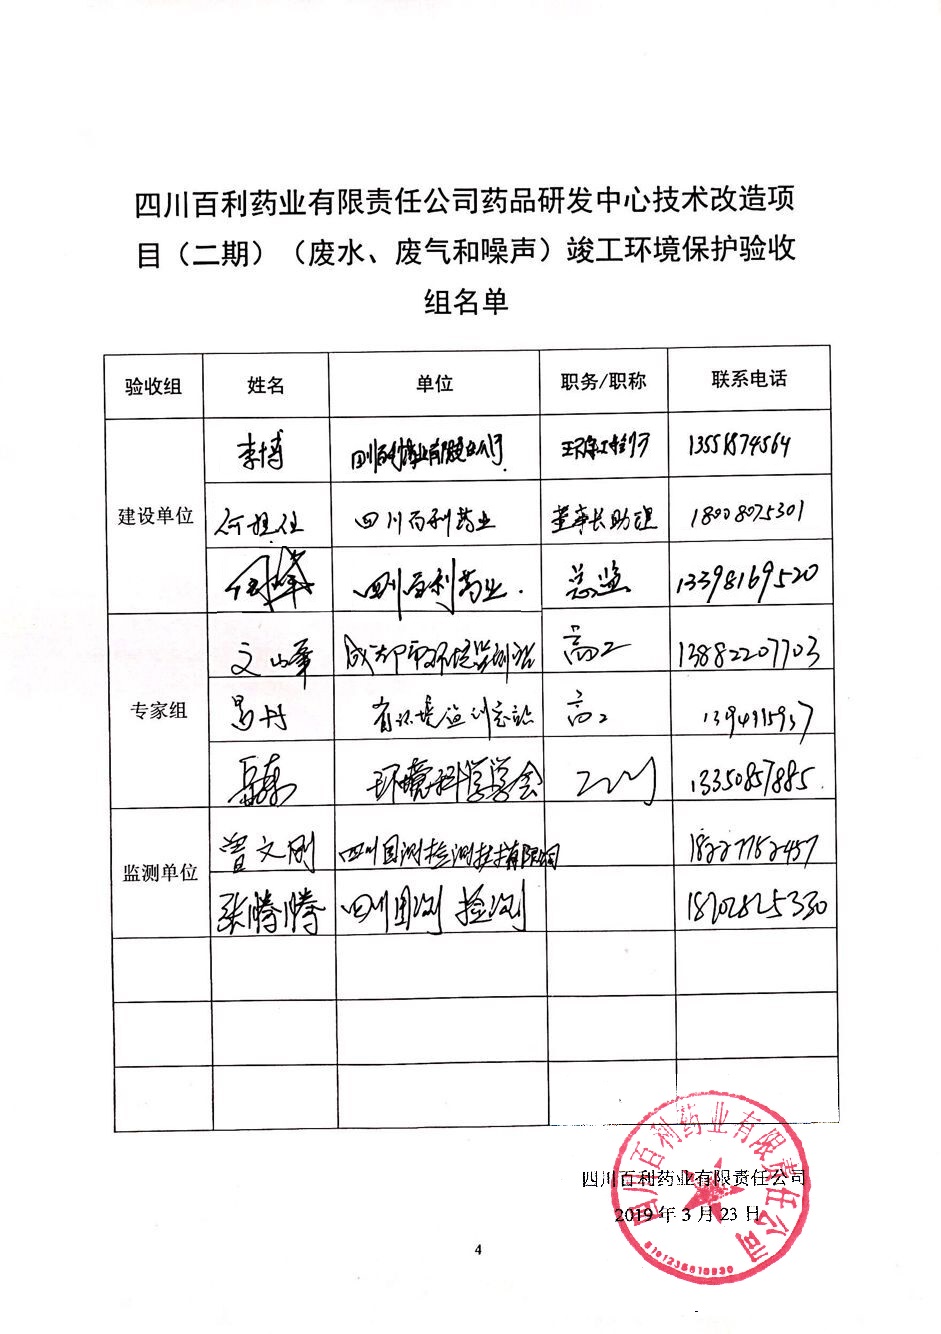 四川百利药业有限责任公司药品研发中心技术改造项
目（二期）（废水、废气和噪声）竣工环境保护验收
组名单
验收组 姓名 单位 职务/职称 联系电话
李博 四川百利药业有限责任公司 13551874564
建设单位 何祖住 四川百利药业 董事长助理 18008075301
四川百利药业. 总监 13398169520
文山峰 成都市环境监测站 高工 13882207703
专家组 易丹 省环境监测总站 高工
环境科学学会 13350857885
监测单位 曾文刚 四川国测检测技术有限公司 18227752457
张腾腾 四川国测检测 18202825330
四川百利药业有限责任公司
四川百利药业有限责任公司
2019 年 3 月 23 日
4